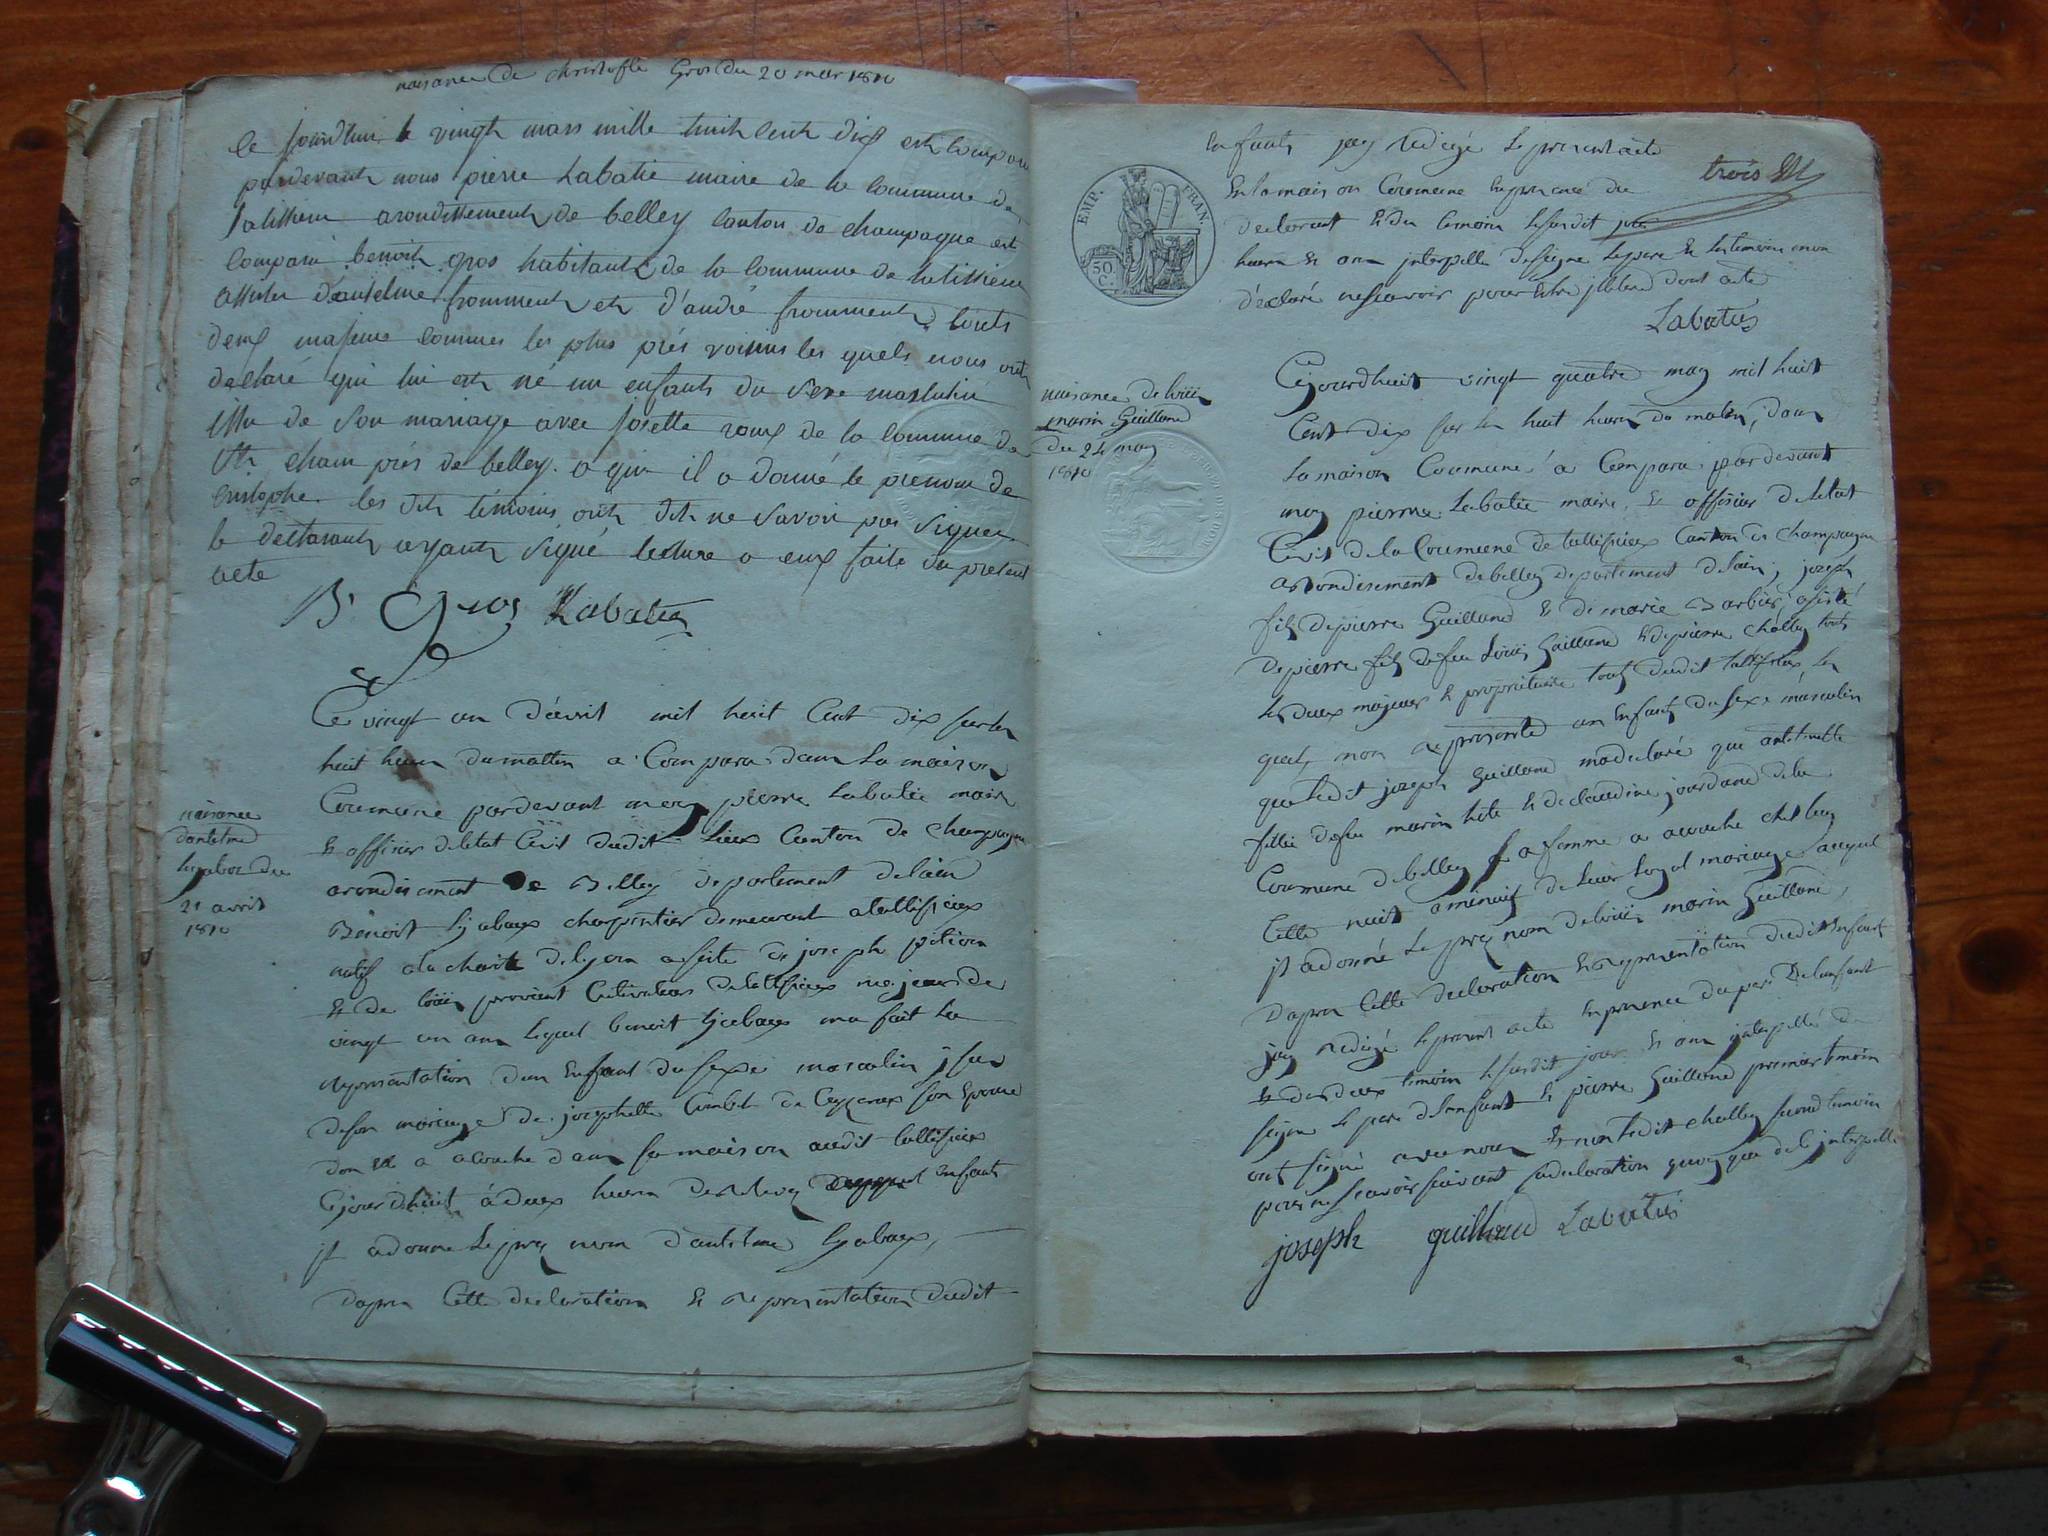 naisance de christofle Gros du 20 mar 1810
ce jourdhui le vingt mars mille huit cent dix est
pardevant nous pierre Labatie maire de la commune de
arondissement de belley canton de champagne est
comparu benoit gros habitant de la commune de
assister d'antelme fromment et d'andré fromment touts
deux majeure commes les plus prés voisins les quels nous ont
déclaré qui lui est né un enfants du sexe masculin
issu de son mariage avec josette roux de la commune de
St cham prés de belley a qui il a donné le prenom de
cristophe les dit témoins ont dit ne savoir pas signer
le declarant ayant signé lecture a eux faite du présent
acte
B. Gros Labatie
naisance
dantelme
du
21 avril
1810
Ce vingt un d'avril mil huit Cent dix sur les
huit heures du mattin a Compara dans La maison
Coumune pardevant moy pierre Labatie maire
& officier deletat Civil dudit Lieux Canton de champagne
arondisement de Belley departement delain
Benoit charpentier demeurant a tallisieux
natif a la charité de lyon asisté de joseph
& de loüis cultivateurs de tallisieux majeurs de
vingt un ans lequel benoit ma fait la
representation dun Enfant du sexe masculin jsu
de son mariage de josephette Combet de Ceyzerieux son Epouse
don Elle a acouché dans sa maison audit tallisieux
Cejourdhuit à deux heures enfants
jl a donné Le prenom d'antelme
dapres Cette declaration & representation dudit
Enfants jay redigé Le present acte
trois
En la maison Coumune En presence du
declarant & des temoin le susdit jour
heure & ont interpellé de signer Le pere & les temoins mon
déclaré ne scavoir pour Etre jlitéré dont acte
Labatie
EMP. FRAN
50 C.
naisance de loüis
marin Guilland
du 24 may
1810
Cejourdhuit vingt quatre may mil huit
Cent dix sur les huit heures du matin, dans
La maison Coumune a Compara pardevant
moy pierre Labatie maire & officier deletat
Civil de la Coumune de tallisieux Canton de champagne
arondisement de belley departement delain, joseph
fils de pierre Guilland & de marie Barbier, asisté
de pierre fils de feu Loüis Guilland & de pierre challey touts
les deux majeurs & propriétaire touts dudit tallisieux les
quels mon representé un Enfants du sexe masculin
que Ledit joseph Guilland ma declaré que anthelmette
fillie de feu marin & de claudine jourdand de la
Coumune de belley sa femme a acouché chez luy
Cette nuit a minuit de Leur Legal mariage auquel
jl a donné Le prenom de loüis marin Guilland,
dapres Cette declaration & representation dudit Enfant
jay redigé Le present acte En presence du pere De l'enfant
& des deux temoin le susdit jour & ont interpellés de
signer Le pere de lenfant & pierre Guilland premier temoin
ont signé avec nous & non Ledit challey second temoin
pour ne scavoir suivant sa declaration quoy que de ce jnterpellé
joseph guilland Labatie